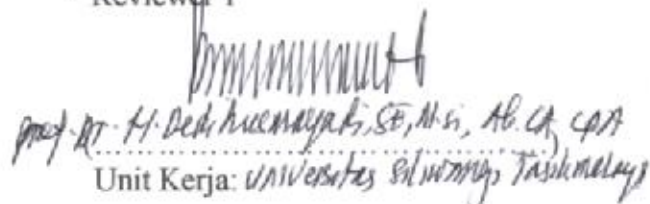 Reviewer 1
Prof. DR. H. Dedi Kusmayadi, SE, M.Si, Ak. CA, CPA
Unit Kerja: Universitas Siliwangi Tasikmalaya